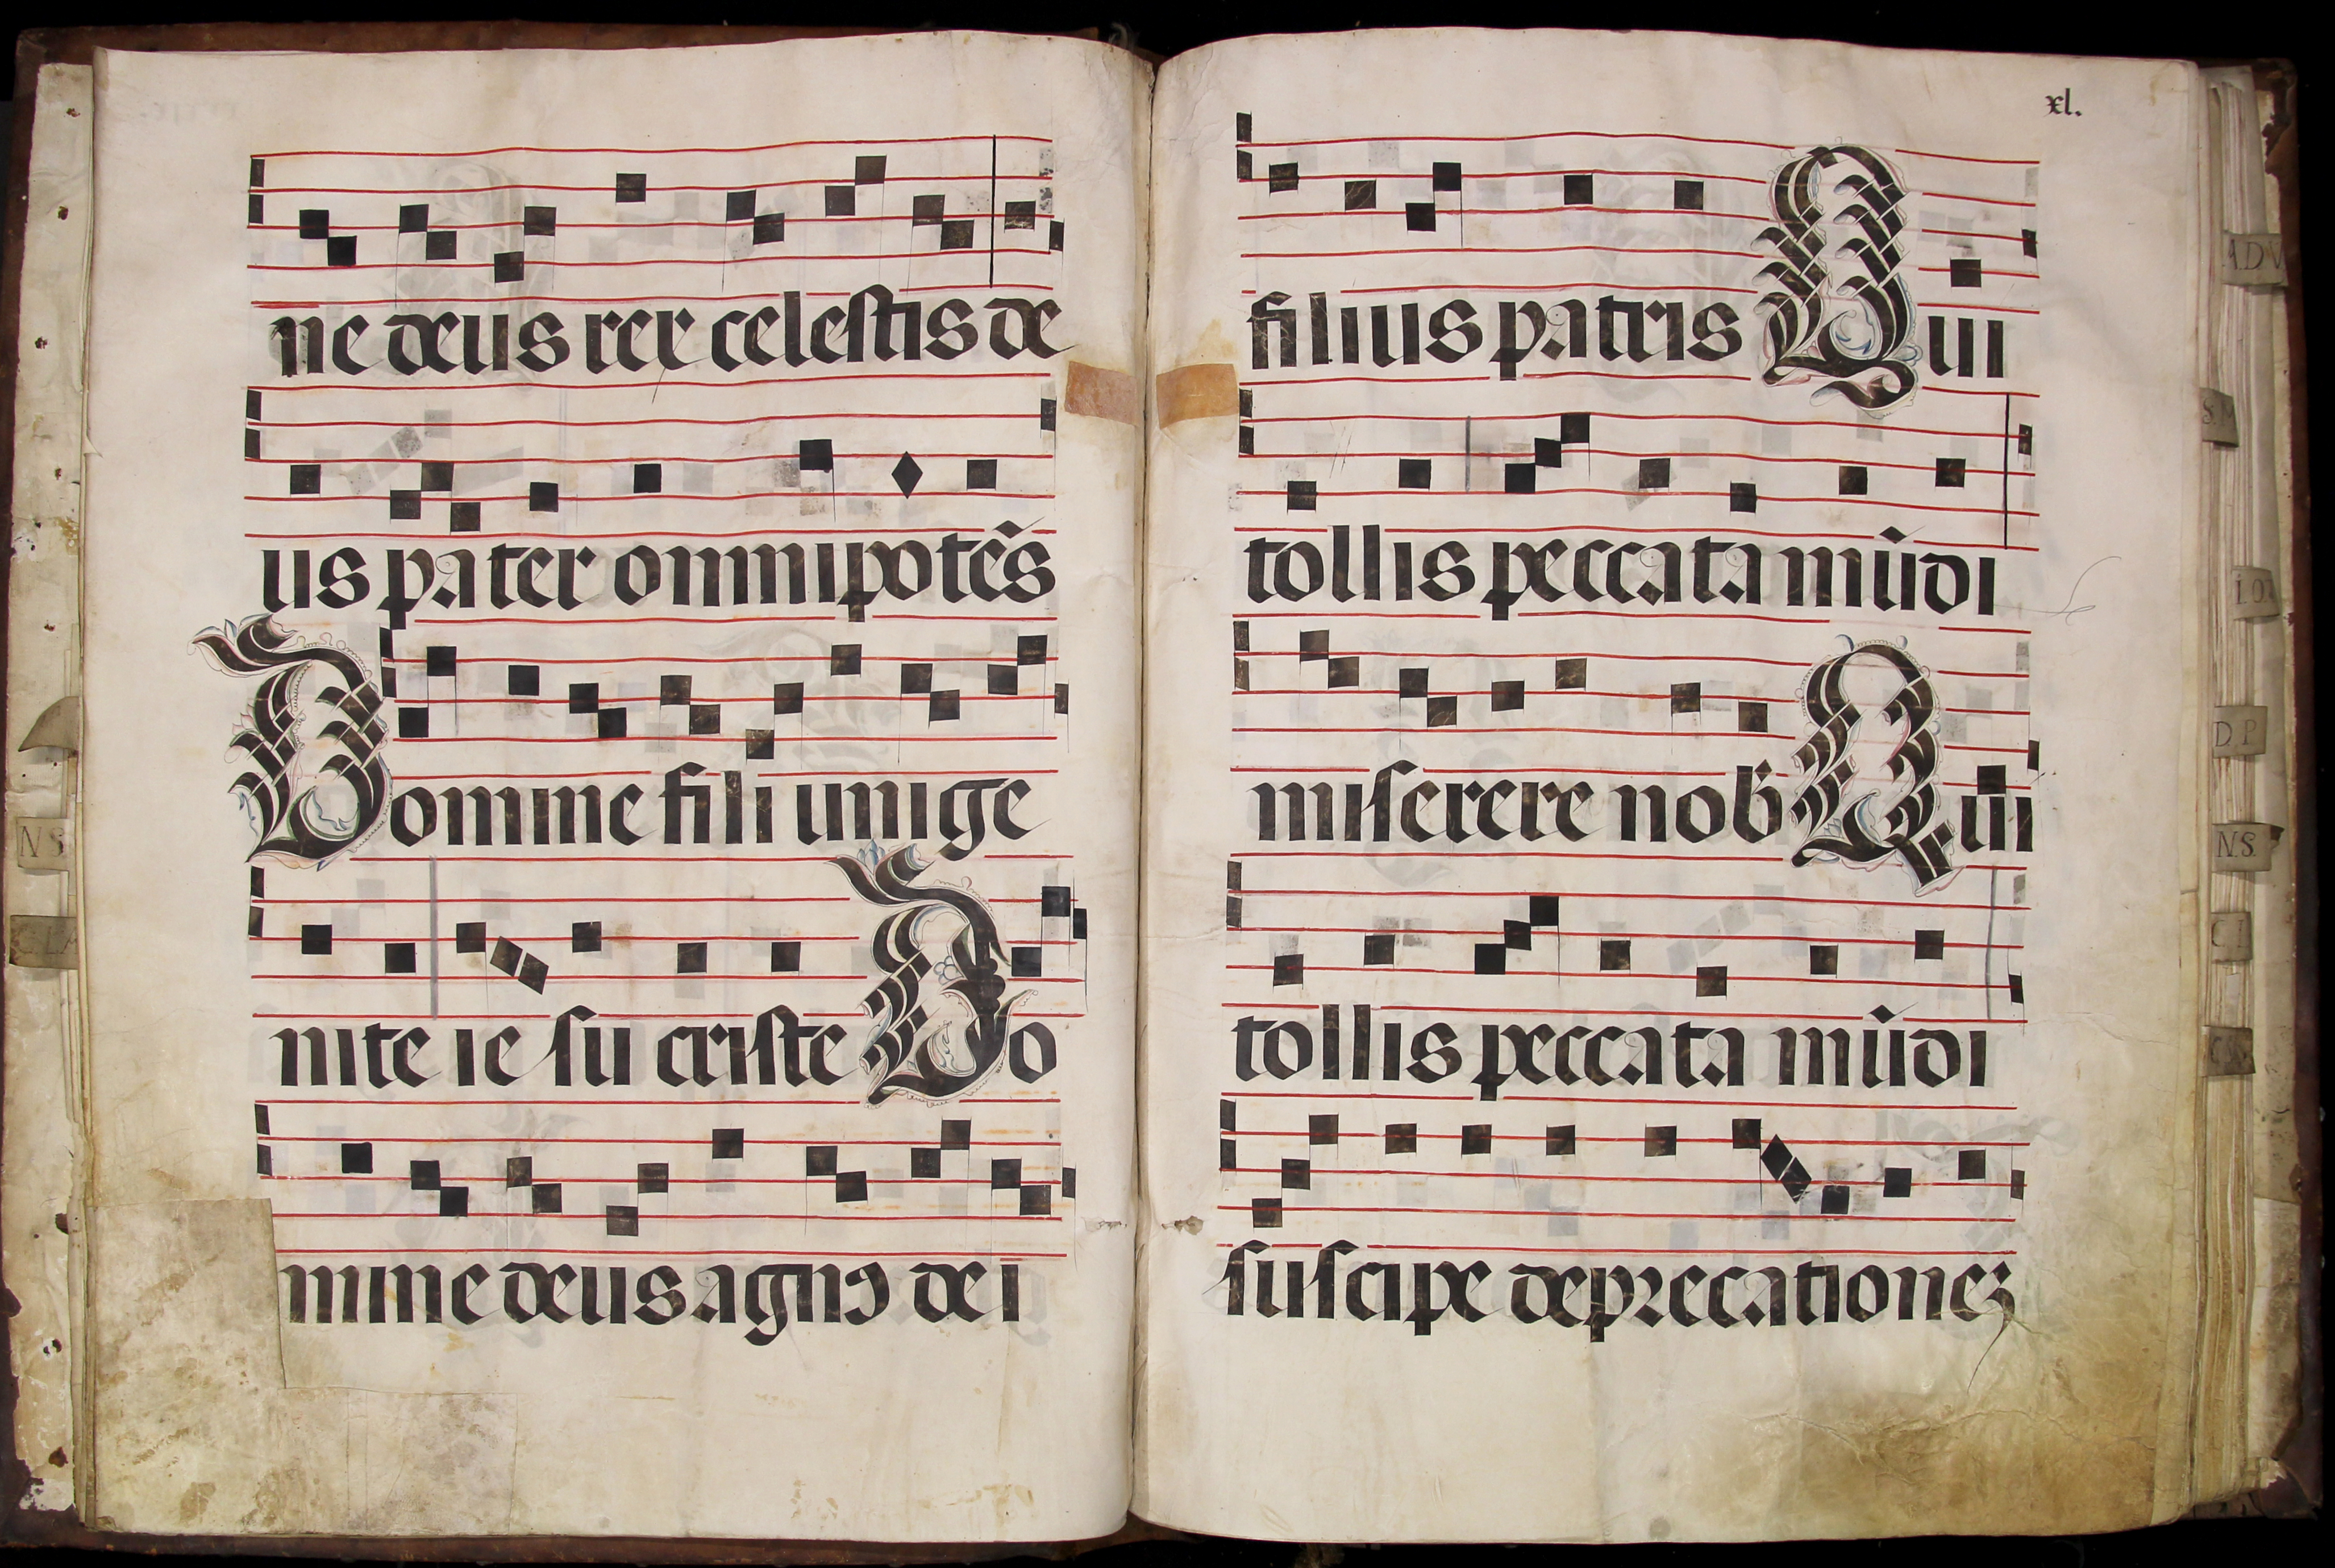 ne deus rex celestis de
us pa ter omnipotẽs
Domine fili unige
nite ie su criste Do
mine deus agne dei
xl.
filius patris Qui
tollis peccata mũdi
miserere nob̃ Qui
tollis peccata mũdi
suscipe deprecationeʒ
N S
D P
N.S.